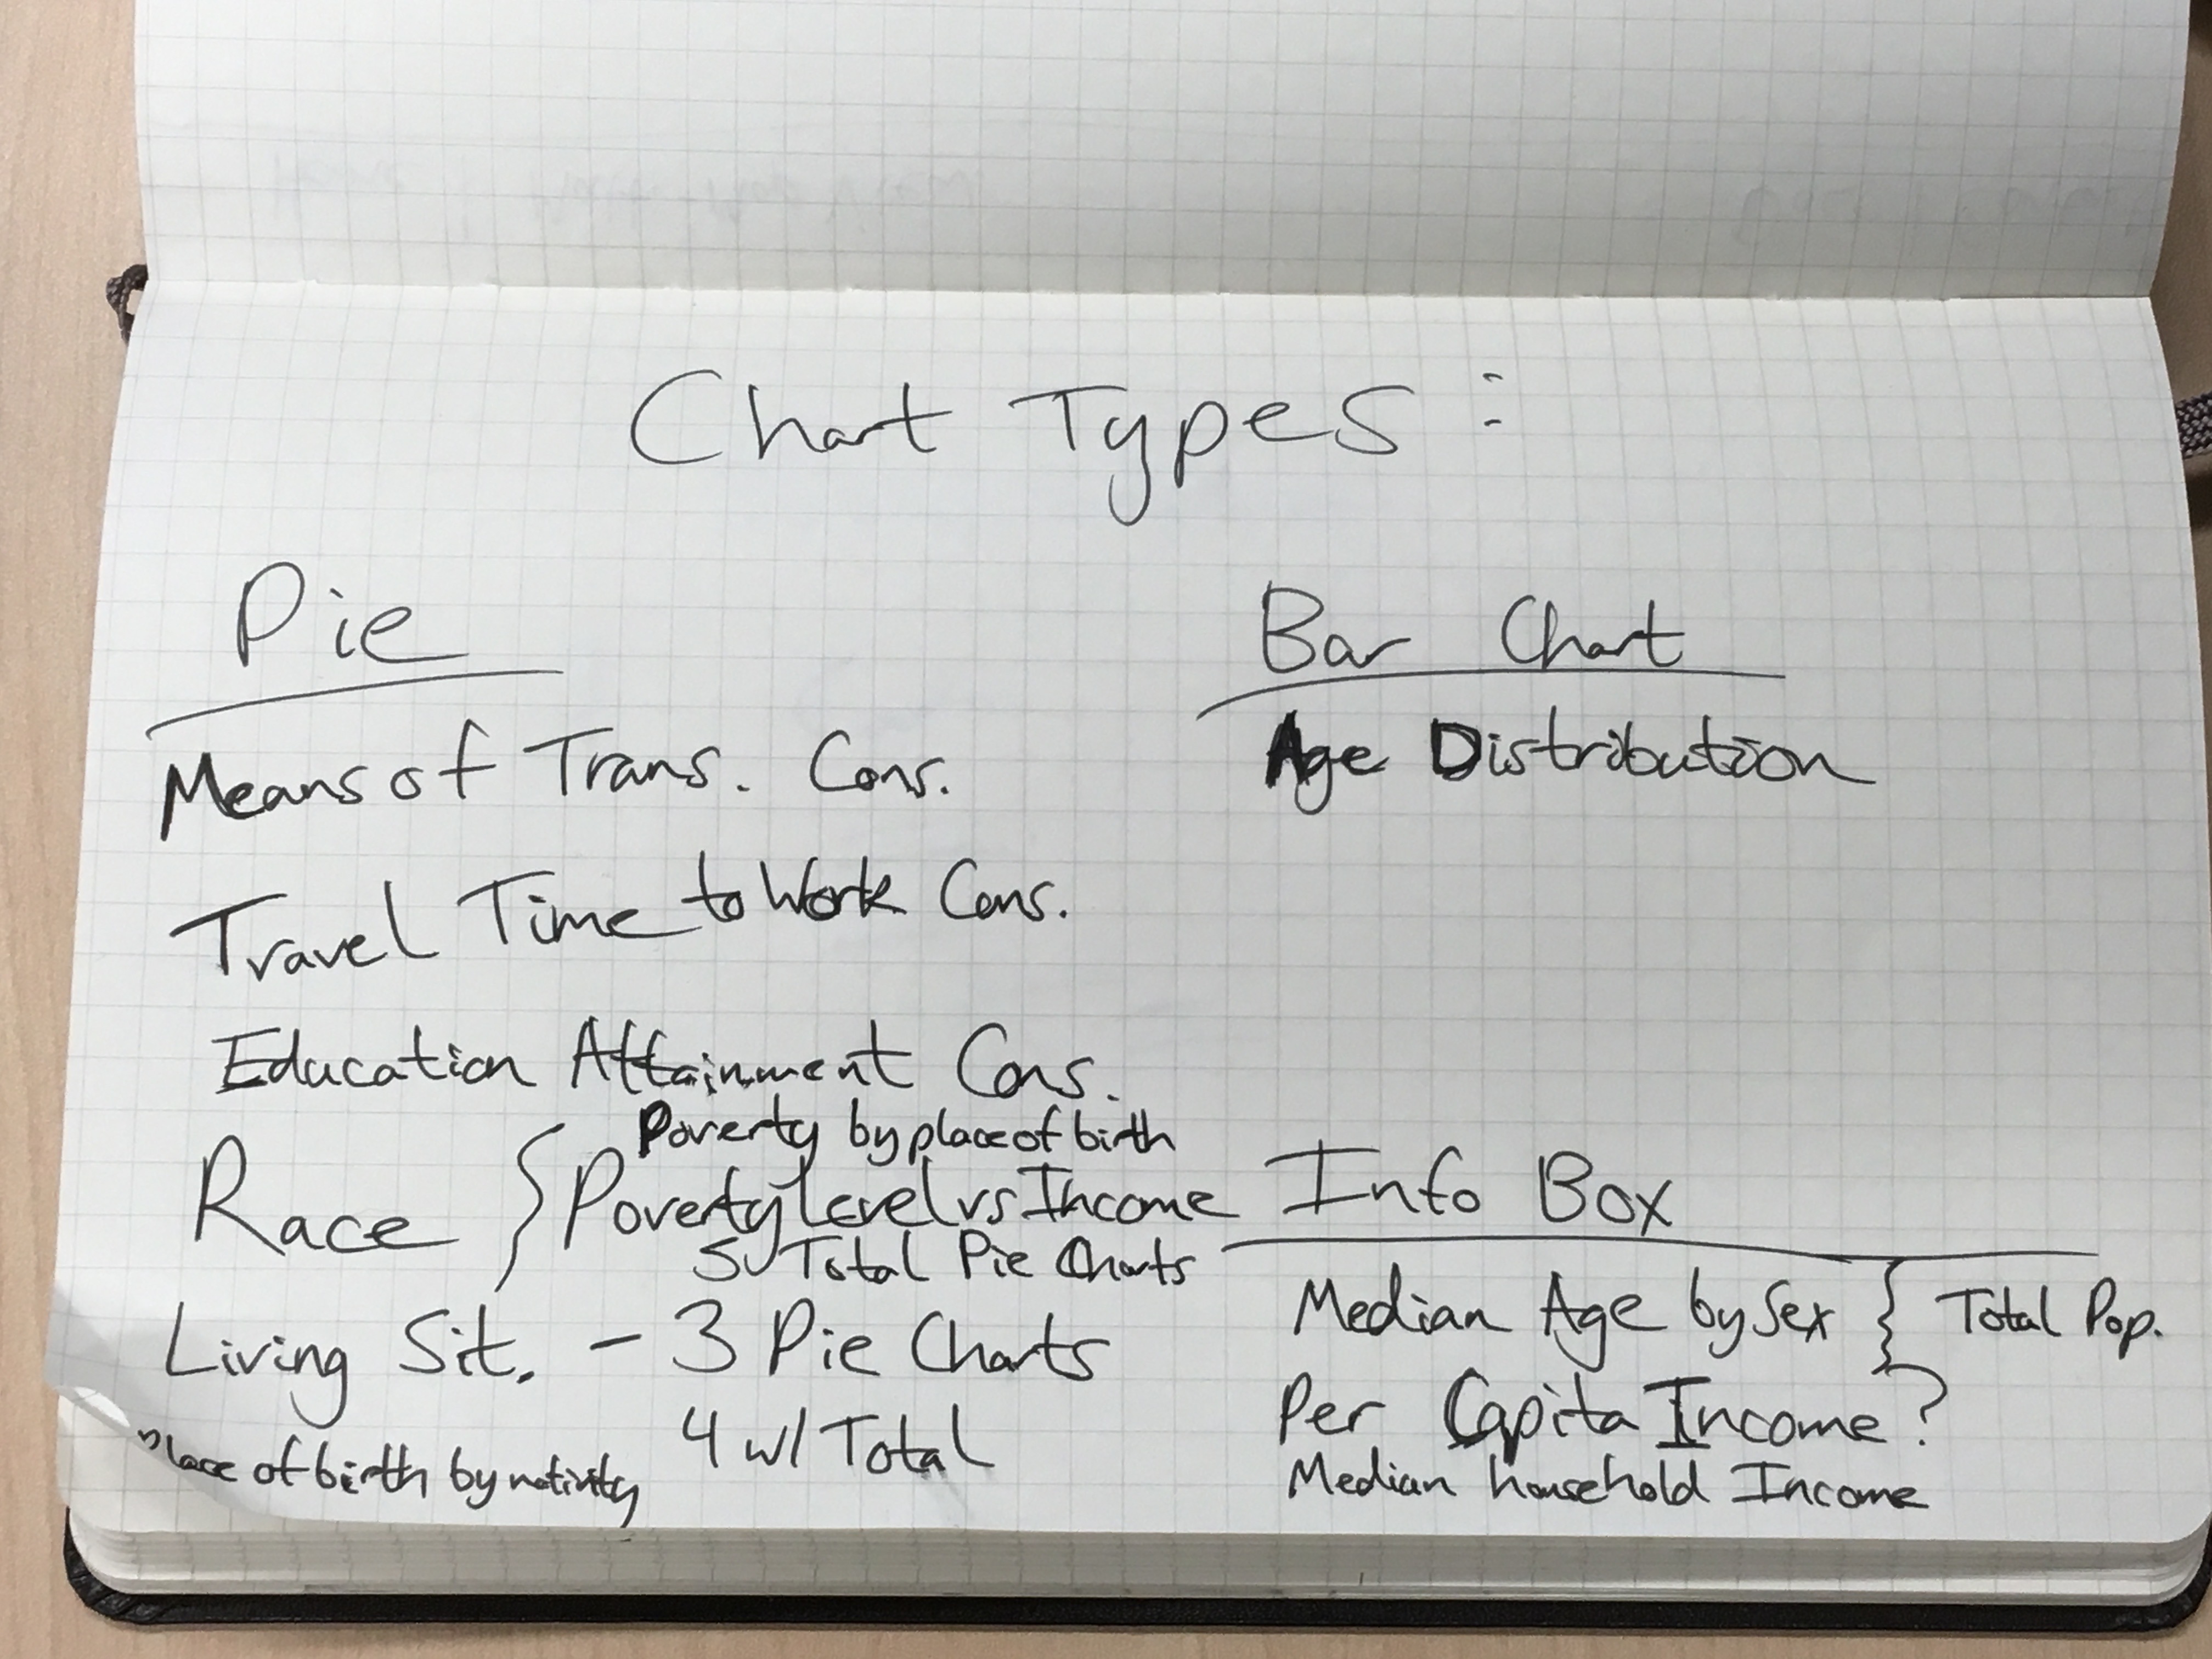 Chart Types :
Pie
Means of Trans. Cons.
Travel Time to Work Cons.
Education Attainment Cons.
Poverty by place of birth
Race { Poverty Level vs Income
5 Total Pie Charts
Living Sit. - 3 Pie Charts
4 w/ Total
Place of birth by nativity
Bar Chart
Age Distribution
Info Box
Median Age by Sex } Total Pop.
Per Capita Income ?
Median household Income